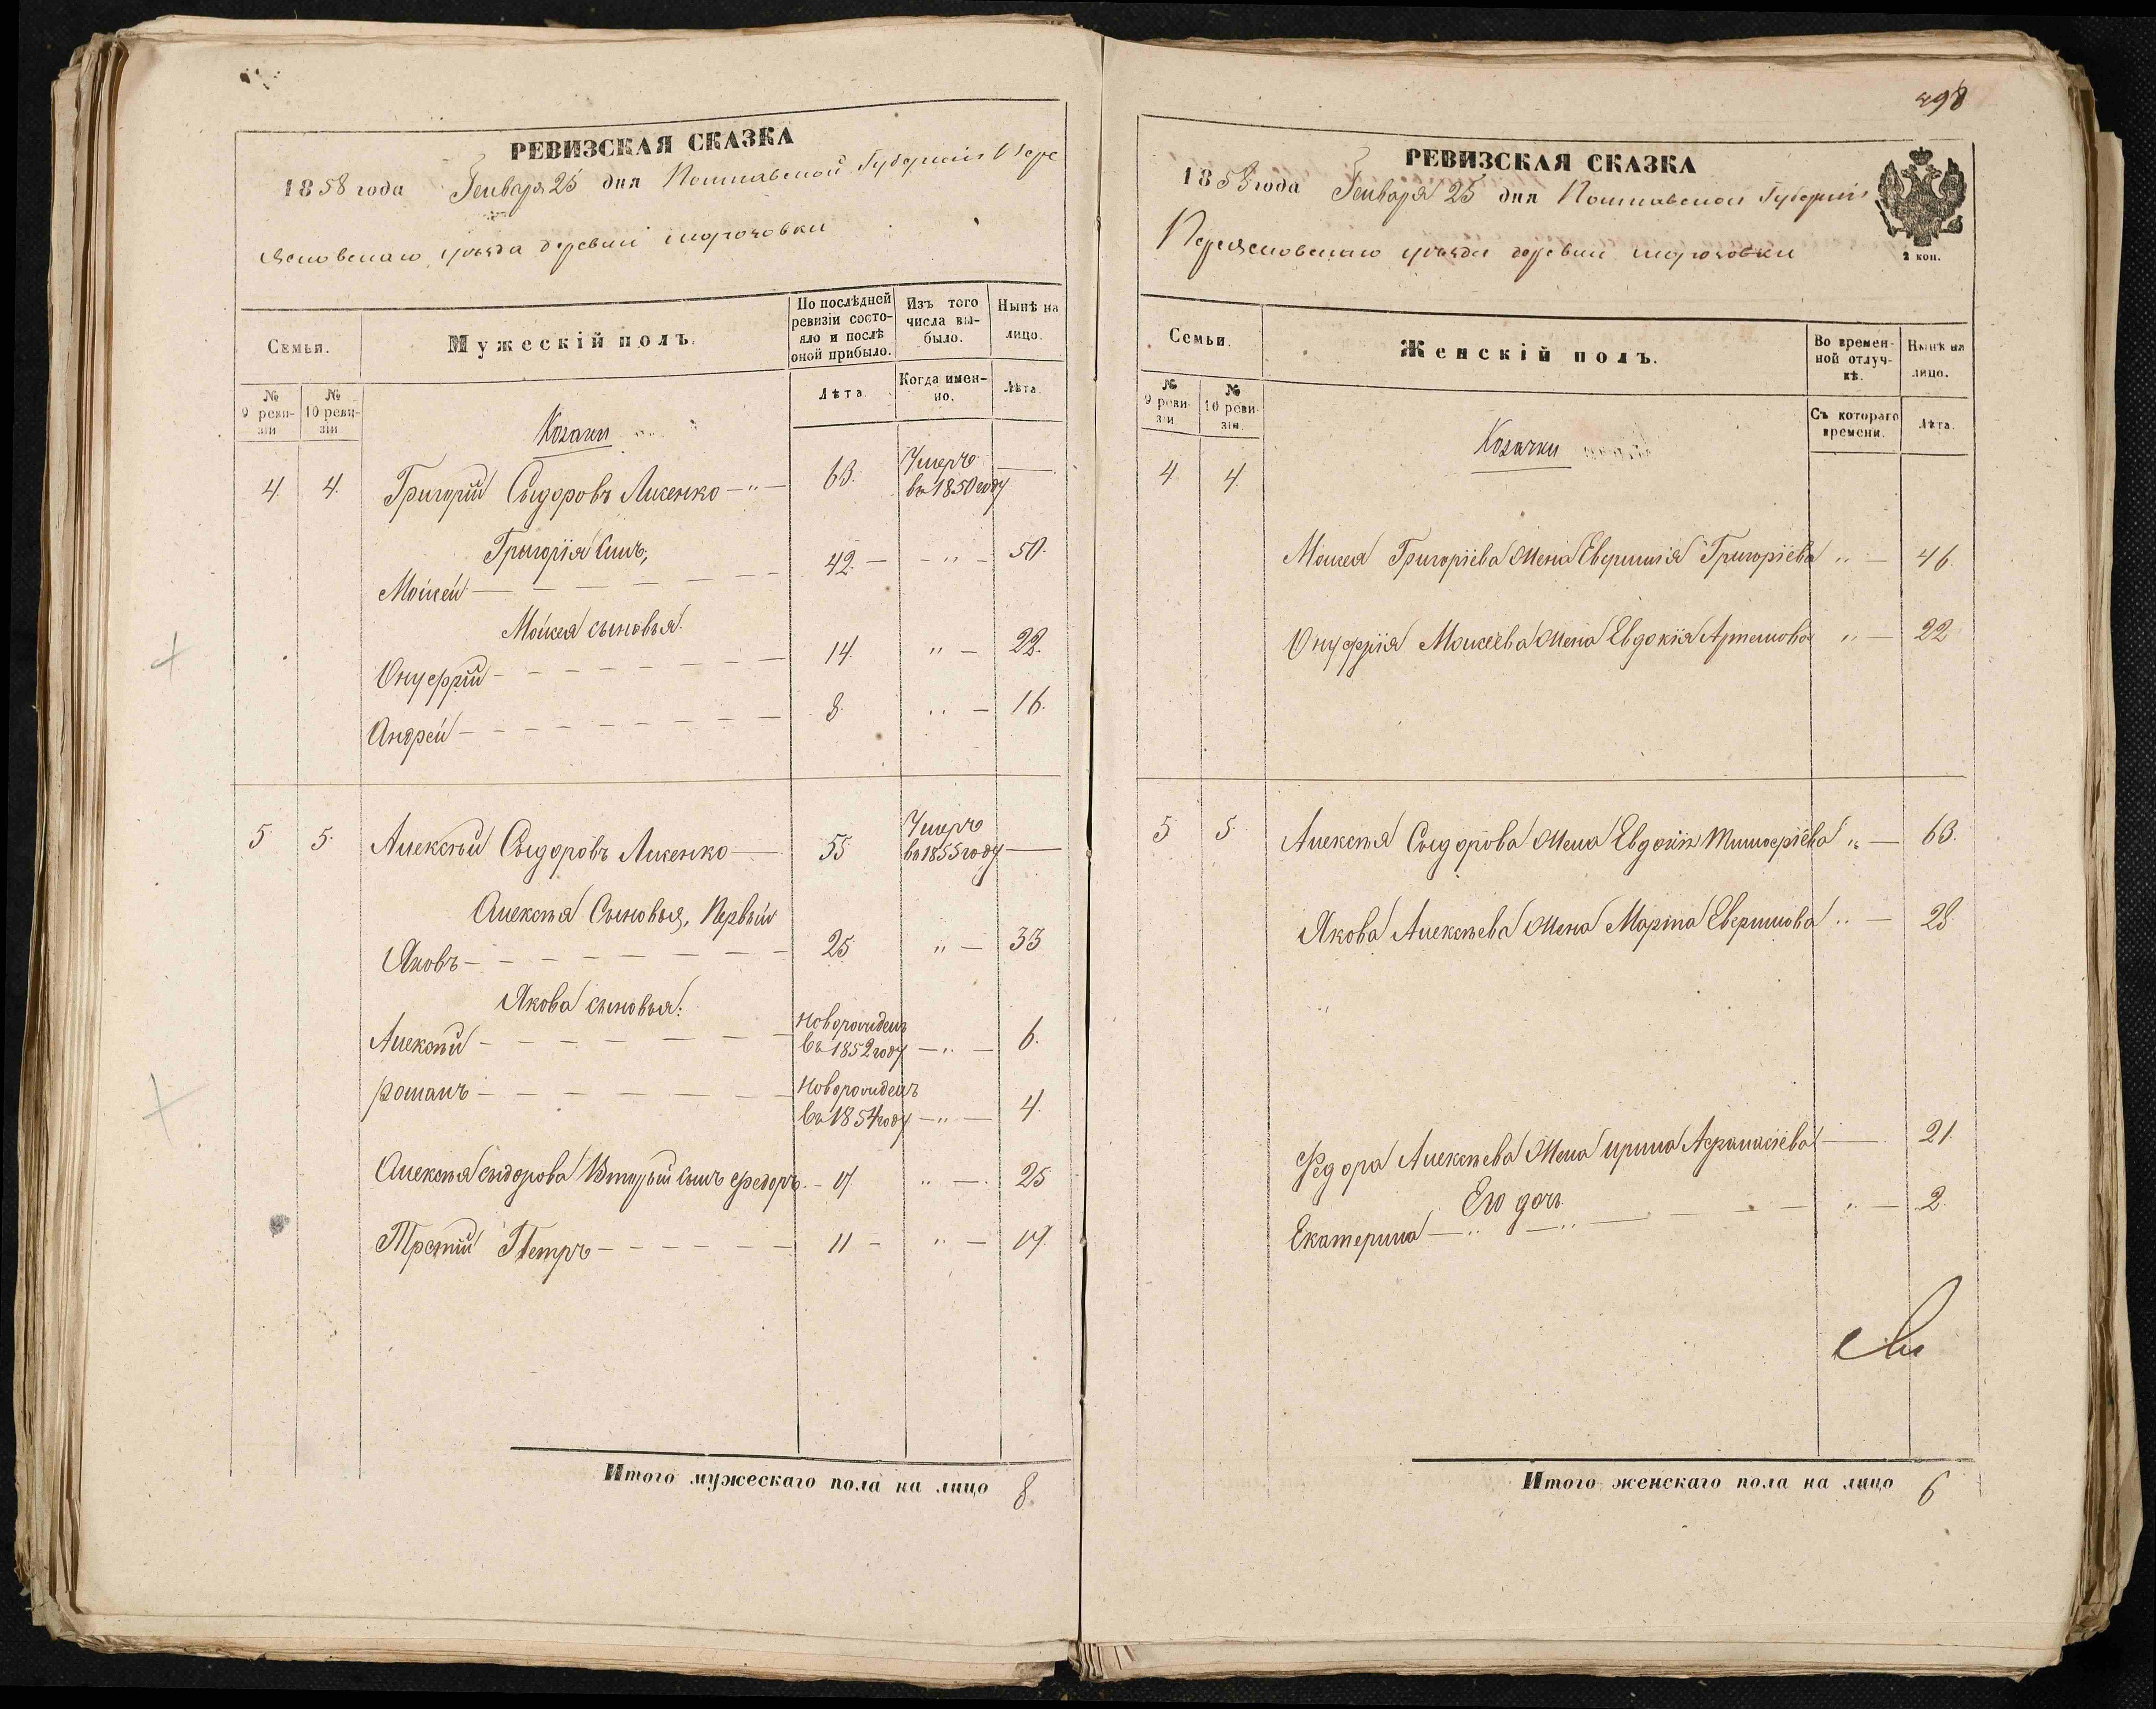 498
РЕВИЗСКАЯ СКАЗКА
1858 года Генваря 25 дня Полтавской Губерніи Пере
яславскаго уѣзда деревни
Семьи.
Мужескій полъ.
По послѣдней ревизіи состояло и послѣ оной прибыло.
Изъ того числа выбыло.
Нынѣ на лицо.
№ 9 ревизіи
№ 10 ревизіи
Лѣта.
Когда именно.
Лѣта.
Козаки
4. 4. Григорій Сидоровъ Лисенко —"— 63. Умеръ въ 1850 году —
Григорія Сынъ,
Моисей — 42. — " — 50.
Моисея сыновья:
Онуфрій — 14. " — 22.
Андрей — 8. " — 16.
5. 5. Алексѣй Сидоровъ Лисенко — 55 Умеръ въ 1855 году —
Алексѣя Сыновья, Первый
Яковъ — 25 " — 33
Якова сыновья:
Алексѣй — Новорожденъ въ 1852 году —"— 6.
Романъ — Новорожденъ въ 1854 году —"— 4.
Алексѣя Сидорова Вторый сынъ Федоръ. — 17 " — 25
Третій Петръ — 11 — " — 19.
Итого мужескаго пола на лицо 8.
РЕВИЗСКАЯ СКАЗКА
1858 года Генваря 25 дня Полтавской Губерніи
Переяславскаго уѣзда деревни
2 коп.
Семьи.
Женскій полъ.
Во временной отлучкѣ.
Нынѣ на лицо.
№ 9 ревизіи
№ 10 ревизіи.
Съ котораго времени.
Лѣта.
Козачки
4 4.
Моисея Григоріева Жена Григоріева " — 46.
Онуфрія Моисеева Жена Евдокія Артемова " — 22
5 5. Алексѣя Сидорова Жена Евдокія Тимоѳеева " — 63.
Якова Алексѣева Жена Марта " — 28
Федора Алексѣева Жена Ирина Афанасіева — 21.
Его дочь
Екатерина —"— " — 2.
Итого женскаго пола на лицо 6